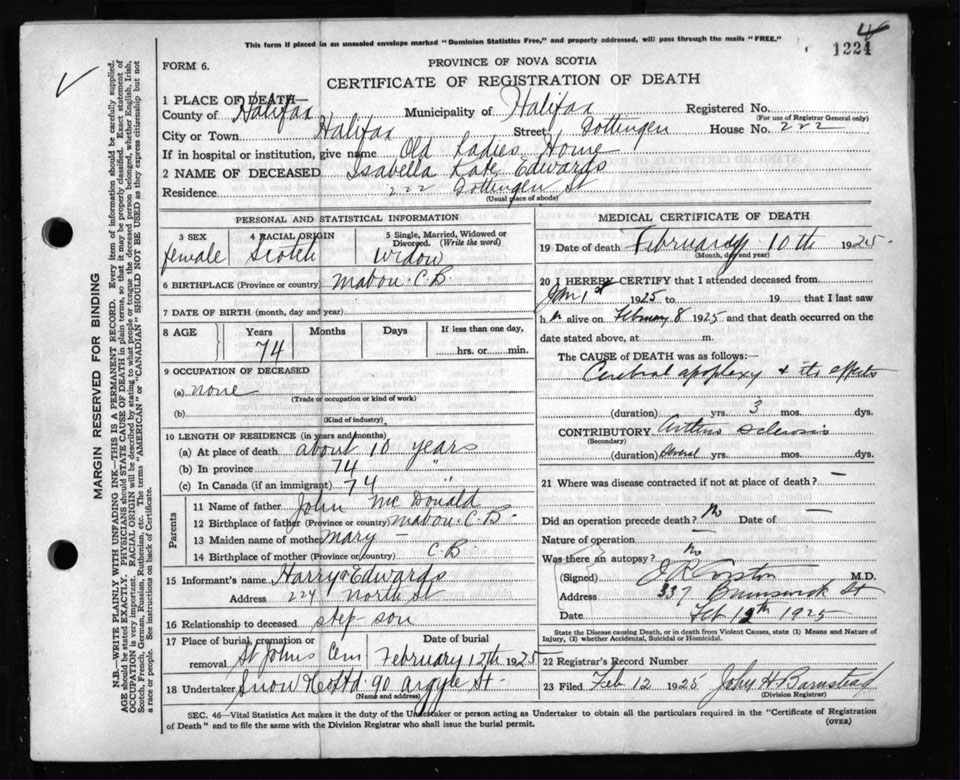 This form if placed in an unsealed envelope marked "Dominion Statistics Free," and properly addressed, will pass through the mails "FREE."
4
1224
FORM 6.
PROVINCE OF NOVA SCOTIA
CERTIFICATE OF REGISTRATION OF DEATH
1 PLACE OF DEATH—
County of Halifax Municipality of Halifax Registered No.
(For use of Registrar General only)
City or Town Halifax Street Gottingen House No. 222
If in hospital or institution, give name Old Ladies Home
2 NAME OF DECEASED Isabella Kate Edwards
Residence 222 Gottingen St
(Usual place of abode)
PERSONAL AND STATISTICAL INFORMATION
3 SEX 4 RACIAL ORIGIN 5 Single, Married, Widowed or Divorced. (Write the word)
female Scotch Widow
6 BIRTHPLACE (Province or country) Mabou C.B.
7 DATE OF BIRTH (month, day and year)
8 AGE Years Months Days If less than one day,
74 hrs. or min.
9 OCCUPATION OF DECEASED
(a) none
(Trade or occupation or kind of work)
(b)
(Kind of industry)
10 LENGTH OF RESIDENCE (in years and months)
(a) At place of death about 10 years
(b) In province 74 "
(c) In Canada (if an immigrant) 74 "
Parents
11 Name of father John McDonald
12 Birthplace of father (Province or country) Mabou C.B.
13 Maiden name of mother Mary —
14 Birthplace of mother (Province or country) C B
15 Informant's name Harry Edwards
Address North St
16 Relationship to deceased step son
17 Place of burial, cremation or removal St Johns Cem Date of burial February 12th 1925
18 Undertaker Snow & Co Ltd 90 Argyle St
(Name and address)
MEDICAL CERTIFICATE OF DEATH
19 Date of death February 10th 1925
(Month, day and year)
20 I HEREBY CERTIFY that I attended deceased from
Jan 1st 1925 to 19 that I last saw
h er alive on February 8 1925 and that death occurred on the
date stated above, at m.
The CAUSE of DEATH was as follows:—
Cerebral apoplexy & its effects
(duration) yrs. 3 mos. dys.
CONTRIBUTORY Arterio Sclerosis
(Secondary)
(duration) Several yrs. mos. dys.
21 Where was disease contracted if not at place of death? —
Did an operation precede death? No Date of —
Nature of operation —
Was there an autopsy? No
(Signed) M.D.
Address 337 Brunswick St
Date Feb 12th 1925
State the Disease causing Death, or in death from Violent Causes, state (1) Means and Nature of
Injury, (2) whether Accidental, Suicidal or Homicidal.
22 Registrar's Record Number
23 Filed Feb 12 1925 John H Barnstead
(Division Registrar)
SEC. 46—Vital Statistics Act makes it the duty of the Undertaker or person acting as Undertaker to obtain all the particulars required in the "Certificate of Registration
of Death" and to file the same with the Division Registrar who shall issue the burial permit.
(OVER)
MARGIN RESERVED FOR BINDING
N.B.—WRITE PLAINLY WITH UNFADING INK—THIS IS A PERMANENT RECORD. Every item of information should be carefully supplied.
AGE should be stated EXACTLY. PHYSICIANS should STATE CAUSE OF DEATH in plain terms, so that it may be properly classified. Exact statement of
OCCUPATION is very important. RACIAL ORIGIN will be described by stating to what people or tongue the deceased person belonged, whether English, Irish,
Scotch, French, German, Russian, Ruthenian, etc. The terms "AMERICAN" or "CANADIAN" SHOULD NOT BE USED as they express citizenship but not
a race or people. See instructions on back of Certificate.